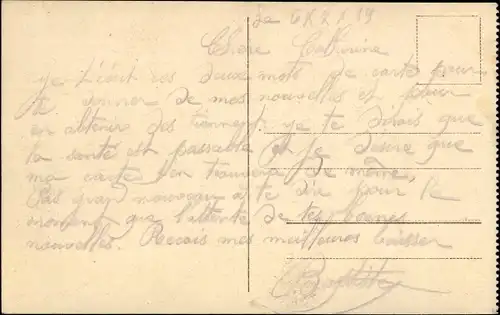 Chere Catherine
je t'ecrit ces deux mots de carte pour
te donner de mes nouvelles et pour
en obtenir des tiennent je te dirais que
la santé est passable et je desire que
ma carte t'en trouvera de même,
Pas grand nouveau a te dire pour le
moment que l'attente de tes bonnes
nouvelles. Recois mes meilleures baisser